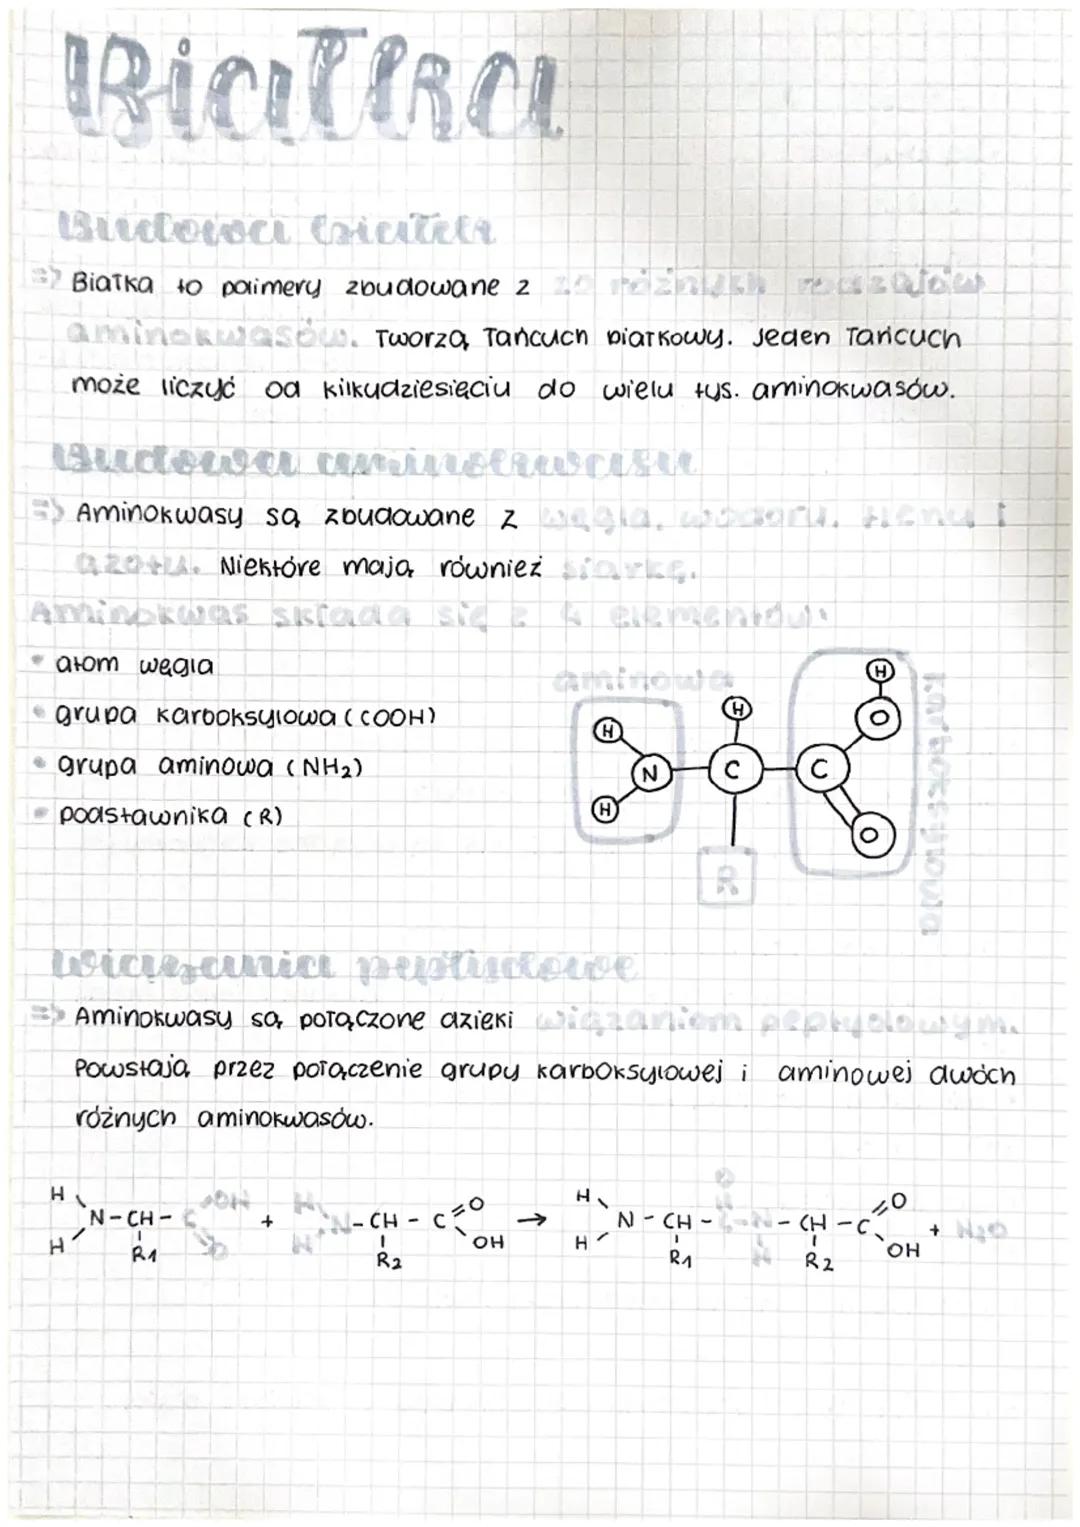 Białka
Budowa białek
=> Białka to polimery zbudowane z 20 różnych rodzajów
aminokwasów. Tworzą łańcuch białkowy. Jeden łańcuch
może liczyć od kilkudziesięciu do wielu tys. aminokwasów.
Budowa aminokwasu
=> Aminokwasy są zbudowane z węgla, wodoru, tlenu i
azotu. Niektóre mają również siarkę.
Aminokwas składa się z 4 elementów:
• atom węgla
• grupa karboksylowa (COOH)
• grupa aminowa (NH2)
• podstawnika (R)
aminowa
karboksylowa
H
H
H
O
H
N
C
C
O
R
Wiązania peptydowe
=> Aminokwasy są połączone dzięki wiązaniom peptydowym.
Powstają przez połączenie grupy karboksylowej i aminowej dwóch
różnych aminokwasów.
H H N - CH - C OH O R1 + H H N - CH - C O OH R2 → H H N - CH - C O - N H - CH - C O OH R1 R2 + H2O